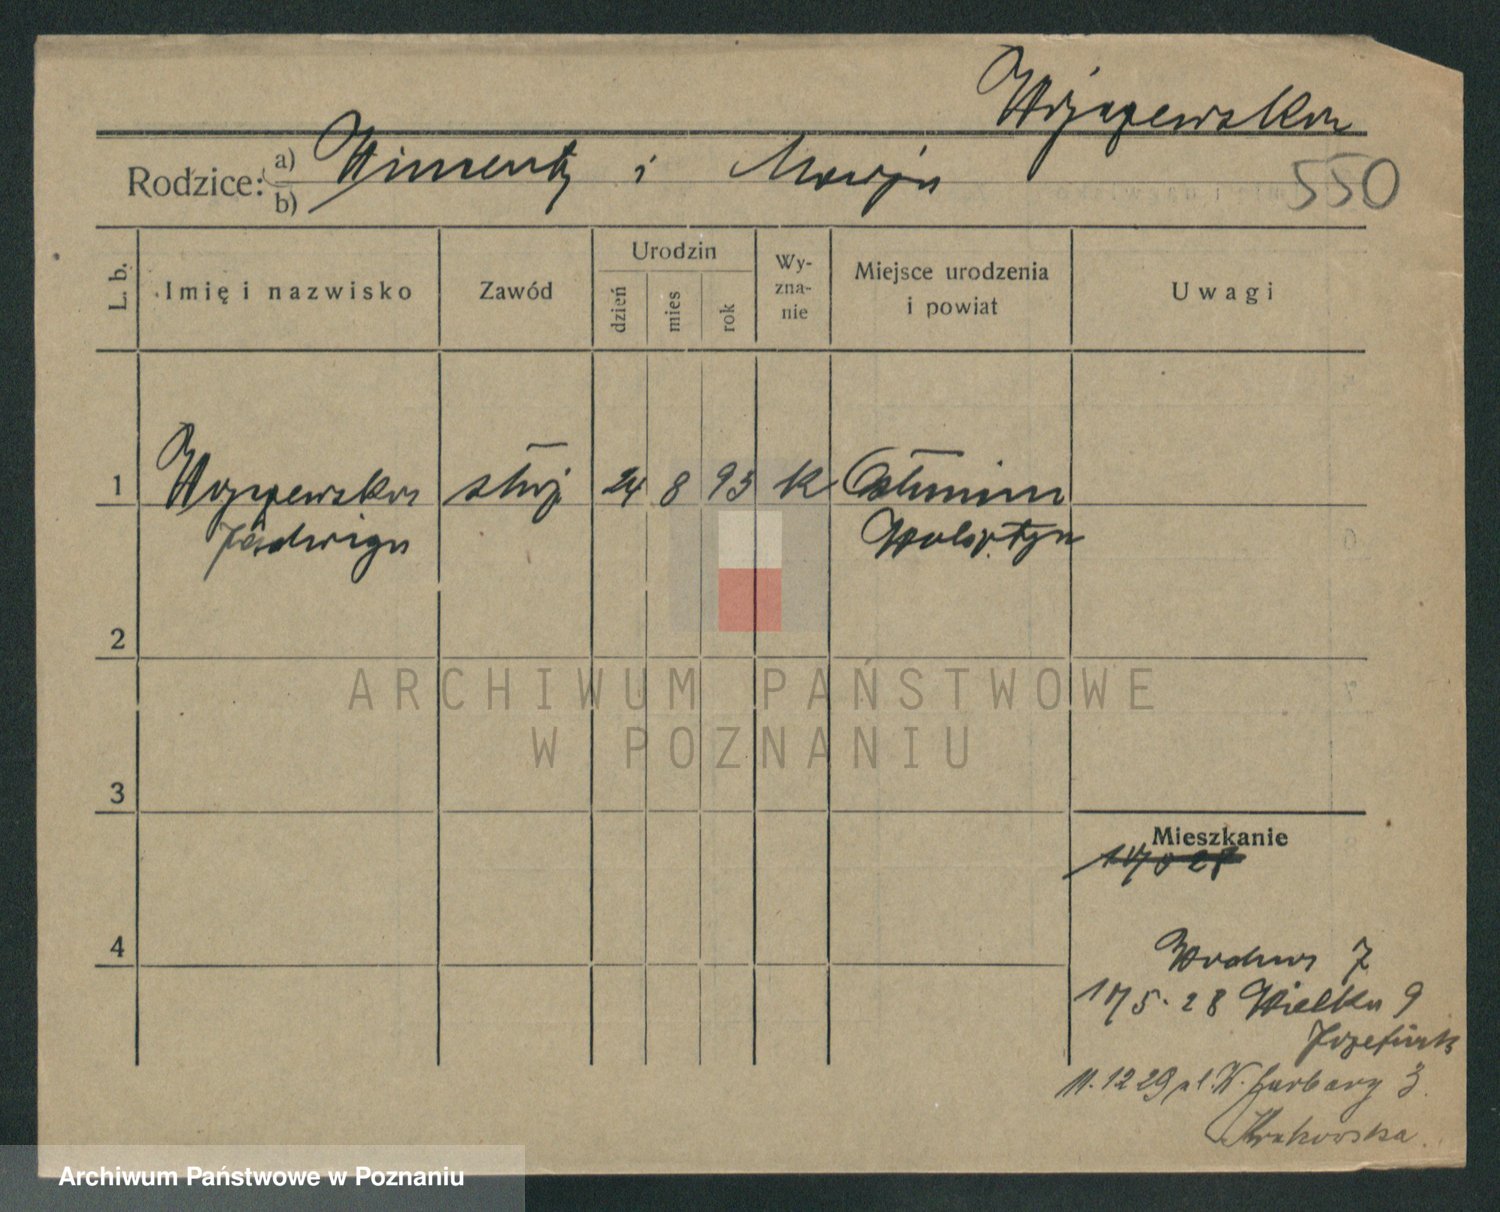 550
Rodzice: a) Wincenty i Marja
b)
L. b. Imię i nazwisko Zawód Urodzin dzień mies rok Wy-zna-nie Miejsce urodzenia i powiat Uwagi
1 służ 24 8 93 k
Jadwiga Wolsztyn
2
ARCHIWUM PAŃSTWOWE
W POZNANIU
3
Mieszkanie
4
Wodna 7
1/5. 28 Wielka 9
11. 12 29 Garbary 3.
Krakowska
Archiwum Państwowe w Poznaniu